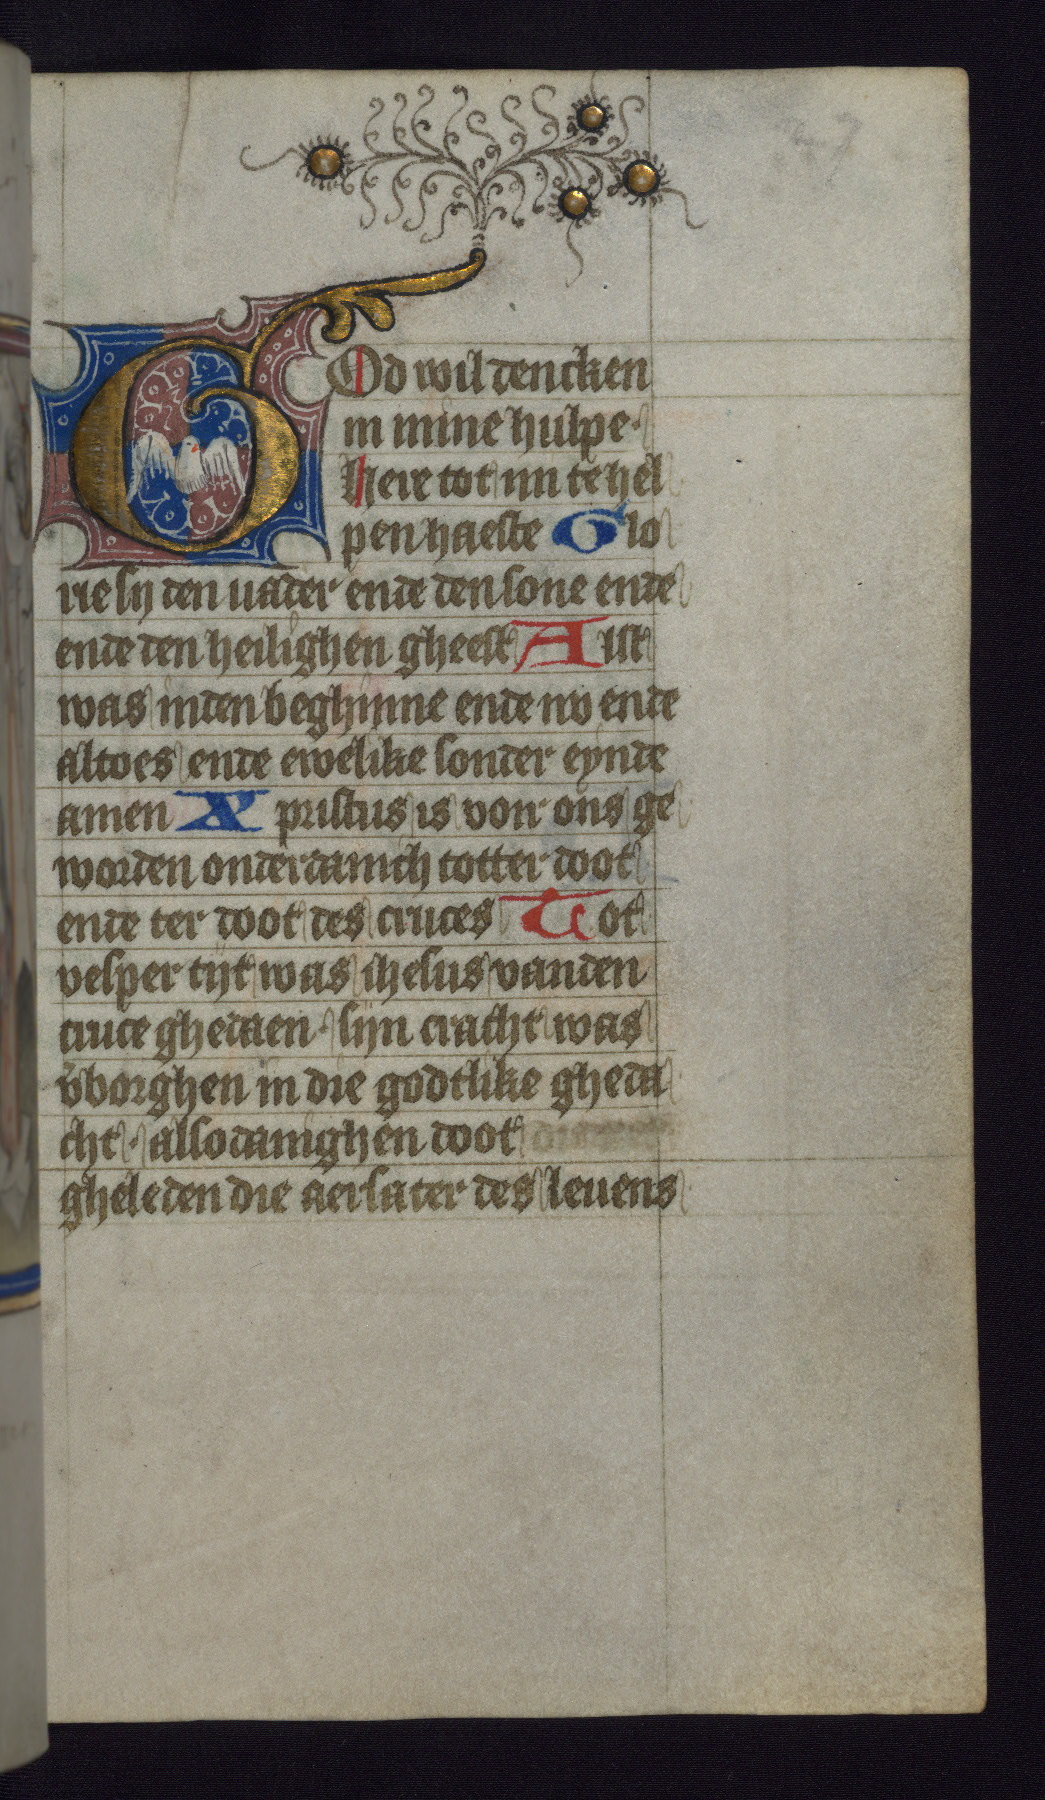 GOd wil dencken
in mine hulpe·
Here tot mi te hel
pen haeste Glo
rie sij den uader ende den sone ende
ende den heilighen gheest Alst
was inden beghinne ende nv ende
altoes ende ewelike sonder eynde
amen Xpristus is voir ons ge
worden onderdanich totter doot
ende ter doot des cruces Tot
vesper tijt was ihesus vanden
cruce ghedaen· sijn cracht was
v̄borghen in die godtlike gheda
cht· alsodanighen doot
gheleden die aersater des leuens